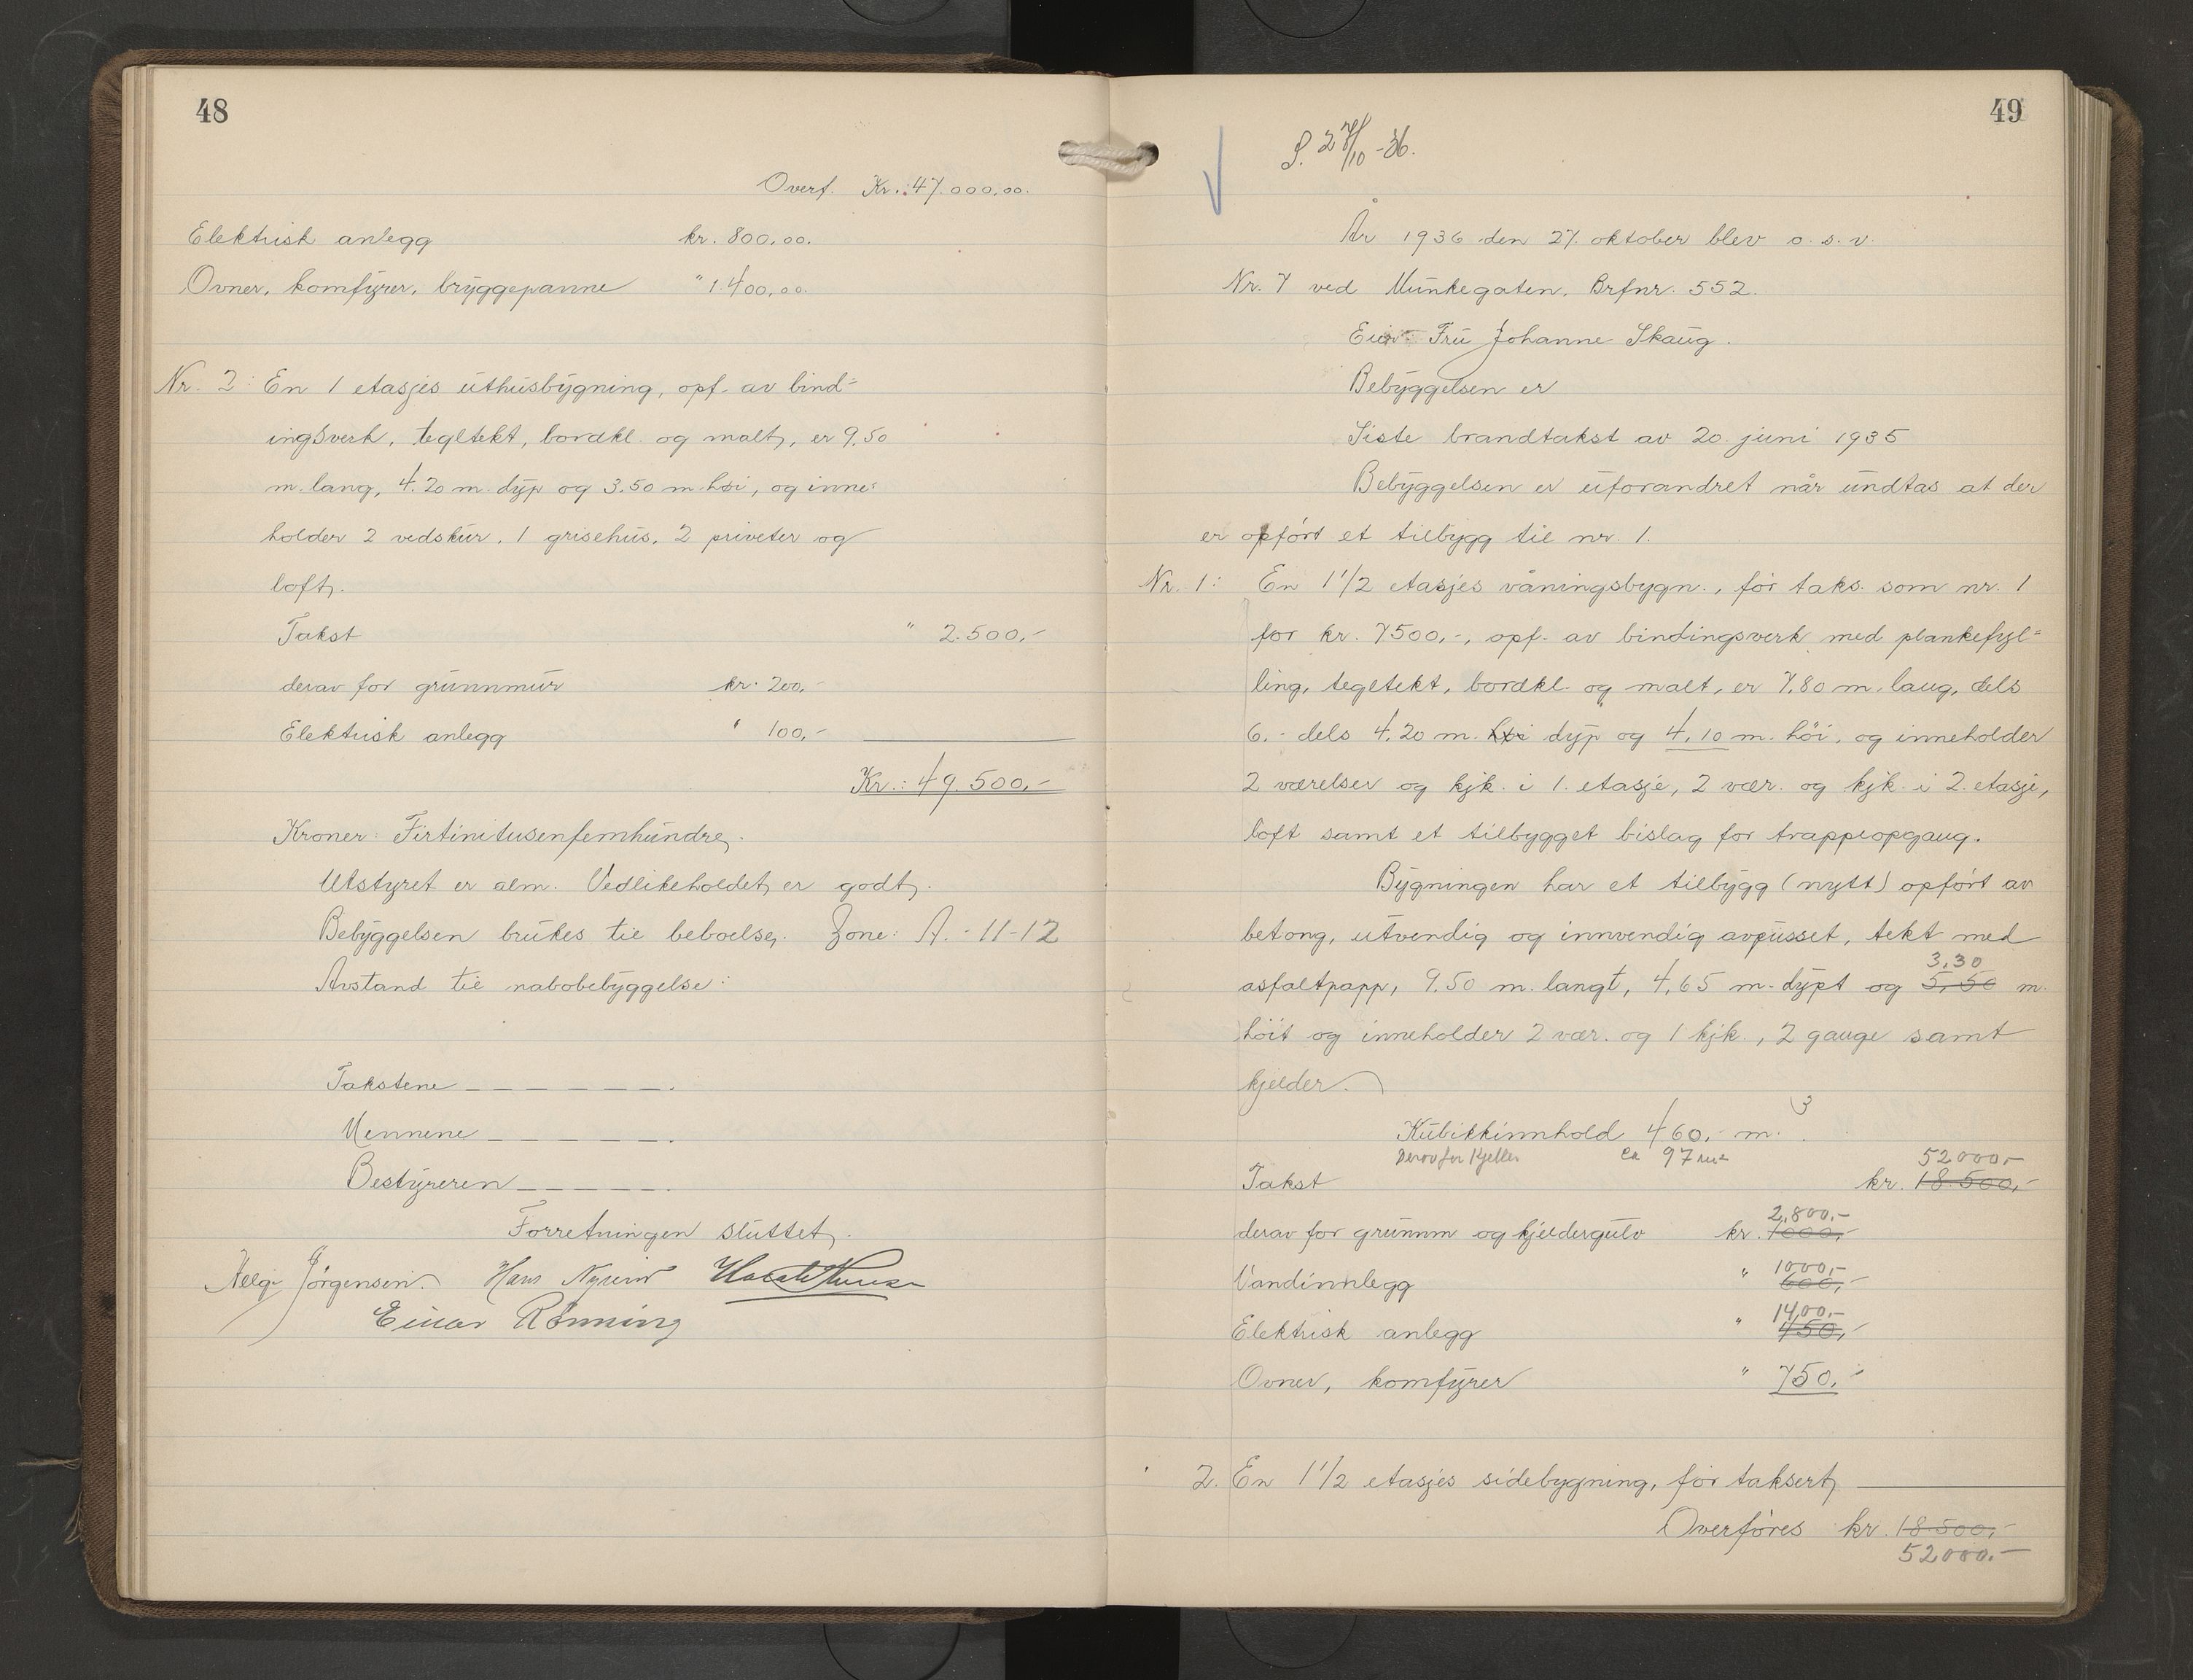 48
Overf. Kr.: 47.000,00.
Elektrisk anlegg kr. 800,00.
Ovner, komfyrer, bryggepanne " 1.400,00.
Nr. 2: En 1 etasjes uthusbygning, opf. av bind=
ingsverk, tegltekt, bordkl. og malt, er 9,50
m. lang, 4.20 m. dyp og 3.50 m. høi, og inne=
holder 2 vedskur, 1 grisehus, 2 priveter og
loft.
Takst " 2.500,-
derav for grunnmur kr. 200,-
Elektrisk anlegg " 100,-
Kr.: 49.500,-
Kroner: Firtinitusenfemhundre.
Utstyret er alm. Vedlikeholdet er godt.
Bebyggelsen brukes til beboelse. Zone: A. - 11-12
Avstand til nabobebyggelse:
Takstene — — — — — —.
Mennene — — — — — —.
Bestyreren — — — — —.
Forretningen sluttet.
Helge Jørgensen. Hans
Einar Rønning
49
S. 27/10-36.
År 1936 den 27. oktober blev o.s.v.
Nr. 7 ved Munkegaten. Brfnr. 552.
Fru Johanne Skaug.
Bebyggelsen er
Siste brandtakst av 20. juni 1935
Bebyggelsen er uforandret når undtas at der
er opført et tilbygg til nr. 1.
Nr. 1: En 1 1/2 etasjes våningsbygn., før taks. som nr. 1
for kr. 7500,-, opf. av bindingsverk med plankefyl=
ling, tegltekt, bordkl. og malt, er 7,80 m. lang, dels
6.- dels 4,20 m. høi dyp og 4,10 m. høi, og inneholder
2 værelser og kjk. i 1. etasje, 2 vær. og kjk. i 2. etasje,
loft samt et tilbygget bislag for trappeopgang.
Bygningen har et tilbygg (nytt) opført av
betong, utvendig og innvendig avpusset, tekt med
3,30
asfaltpapp, 9.50 m. langt, 4,65 m. dypt og 5,50 m.
høit og inneholder 2 vær. og 1 kjk., 2 gange samt
kjelder.
Kubikkinnhold 460,- m.3
Derav for Kjeller ca 97 m2
52000,-
Takst kr. 18.500,-
2,800,-
derav for grunnm og kjeldergulv kr. 1000,-
1000,-
Vandinnlegg " 600,-
1400,-
Elektrisk anlegg " 450,-
Ovner, komfyrer " 750,-
2. En 1 1/2 etasjes sidebygning, før taksert
Overføres kr. 18.500,-
52000.-